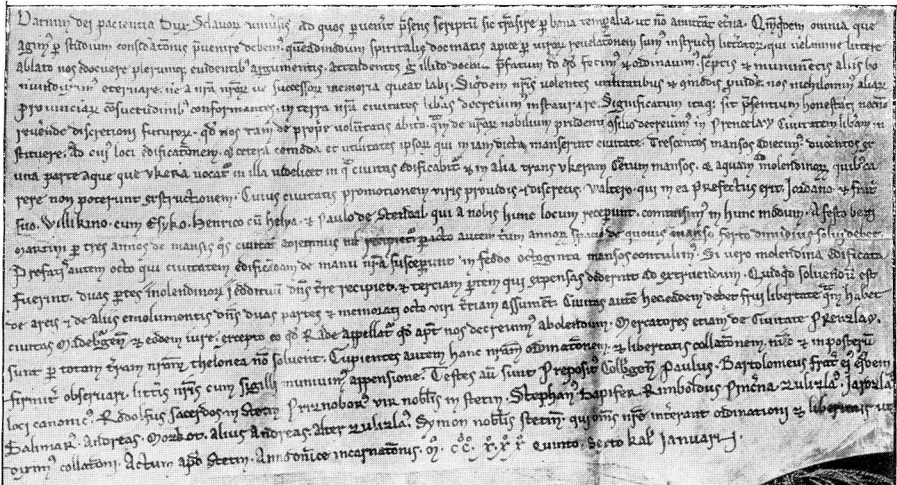 Barnim dei paciencia Dux Sclavoꝝ uniuſis. ad quos puen̄it p̄sens scriptū sic tn̄sire p bona temp̄alia. ut nō amittāt et̄na. Qm̄q͛dem omnia que
agim⁹ p studium considātonis puenire debem⁹. quēadmodum spiritalis docmatis apice p uiroꝝ reuelatōnem sum⁹ instructi
ablato nos docuere plerūq; euidentib⁹ argumentis. p̄fatum do qd̄ fecim⁹ & ordinauim⁹ scriptis & munim̄tis aliis
eternare. ne a nr̄a ur̄oꝝ ue successoꝝ memoria queat labi. Siq͛dem nr̄is uolentes utilitatibus & ꝯmodis puid̄e. nos nichilomin⁹ alioꝝ
prouinciaꝝ ꝯsuetudinib⁹ conformantes. in terra nr̄a ciuitates lib̄as decreuim instaurare. Significatum itaq; sit p̄sentium honestati necnō
reuerēde discretioni futuroꝝ. qd̄ nos tam de propͥe uolūtatis abit͛o. qͣm de ur̄oꝝ nobilium prudenti ꝯsilio decreuim⁹ in Prencelaw Ciuitatem lib̄am in
stituere. Ad cui⁹ loci edificatōnem. & cetera cōmoda & utilitates ipsoꝝ qui in iam dicta manserint ciuitate. Trescentos mansos ꝯiecim⁹. ducentos ex
una parte aque que ukera uocat᷑ in illa uidelicet in q̄ ciuitas edificabit᷑ & in alia trans vkeram Centum mansos. & aquam molendinoꝝ quib⁹ ca
rere non poterunt ꝯstructionem. Cuius ciuitatis promotionem uiris prouidis & discretis. Valtero. qui in ea Prefectus erit. Jordano & frat͛
suo. Willikino. cum Esyko. Henrico cū helya. & Paulo de Stendal qui a nobis hunc locum recepunt. commisim⁹ in hunc modum. A festo beati
martini p tres annos de mansis q̄s ciuitati adiecimus nil recipiet᷑. pacto autem t͛um annoꝝ spatio de quouis manso ferto dimidius solui debet.
Prefati autem octo qui ciuitatem edificādam de manu nr̄a suscepunt. in feodo octoginta mansos contulim⁹. Si uero molendina edificata
fuerint. duas ptes molendinoꝝ redditūū dn̄s t̄re recipiet. & terciam ptem qui expensas dederint ad extruendum. Quidq͛d soluendū est
de areis & de aliis emolumentis dn̄s duas partes & memorati octo uiri t͛tiam assumēt. Ciuitas autē hec eadem debet frui libertate q̄m habet
ciuitas Magdebg̃eñ. & eodem iure. excepto eo qd̄ Rade appellat᷑ qd̄ apt̄ nos decreuim⁹ abolendum. Mercatores etiam de Ciuitate Prenzlaw.
sunt p totam t̄ram nr̄am. thelonea nō soluent. Cupientes autem hanc nr̄am ordinatōnem. & libertatis collatōnem. nūc & inposterū
firmit͛ obseruari. litt̄is nr̄is cum sigilli muniuim⁹ appensione. Testes aū sunt. Preposit⁹ Colbg̃eñ Paulus. Bartolomeus frat͛ ei⁹ q͛dem
loci canonic⁹. Rodolfus sacerdos in Stetin. Priznobor. uir nobl̄is in Stetin. Stephan⁹ Dapifer. Rimboldus Pinc̄na. Zulizlā. Japzlā.
Dalmar. Andreas. Morbot. alius Andreas. alter Zulizlā. Symon nobl̄is stetiñ. qui om̄s nr̄e int̄erant ordinationi & libertatis ut
diximus collatōni. Actum apd̄ Stetin. Anno dn̄ice incarnatōnis. ꝳ. c͞c͞. x͞.x͞.x͞ Quinto. Sexto kal̄ Ianuarij.